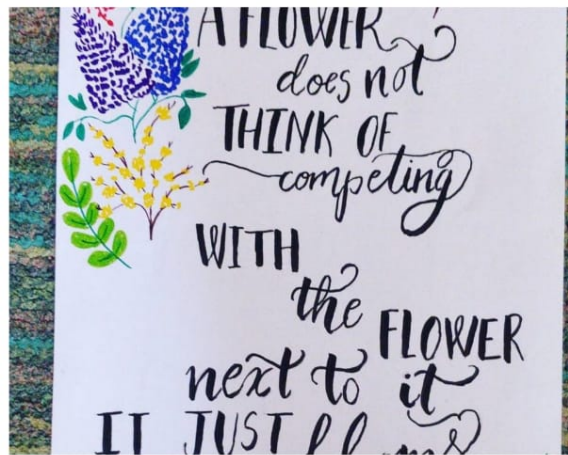 A FLOWER
does not
THINK OF
competing
WITH
the FLOWER
next to it
IT JUST